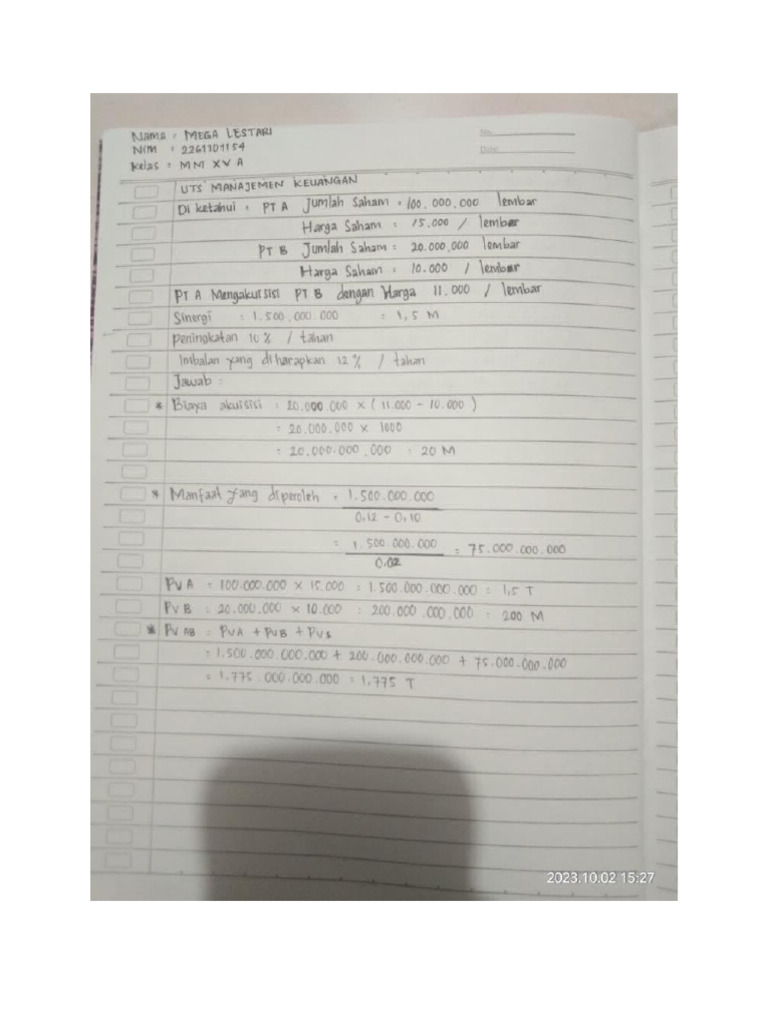 Nama : MEGA LESTARI
NIM : 2261101154
Kelas : MM XV A
No.
Date:
UTS MANAJEMEN KEUANGAN
Di ketahui : PT A Jumlah Saham : 100.000.000 lembar
Harga Saham : 15.000 / lembar
PT B Jumlah Saham : 20.000.000 lembar
Harga Saham : 10.000 / lembar
PT A Mengakuisisi PT B dengan Harga 11.000 / lembar
Sinergi : 1.500.000.000 : 1,5 M
Peningkatan 10% / tahun
Imbalan yang diharapkan 12% / tahun
Jawab :
* Biaya akuisisi : 20.000.000 × (11.000 - 10.000)
= 20.000.000 × 1000
= 20.000.000.000 : 20 M
* Manfaat yang diperoleh = 1.500.000.000
0,12 - 0,10
= 1.500.000.000 = 75.000.000.000
0.02
PV A = 100.000.000 × 15.000 : 1.500.000.000.000 : 1,5 T
PV B : 20.000.000 × 10.000 : 200.000.000.000 : 200 M
* PV AB = PVA + PVB + PVs
= 1.500.000.000.000 + 200.000.000.000 + 75.000.000.000
= 1.775.000.000.000 = 1,775 T
2023.10.02 15:27